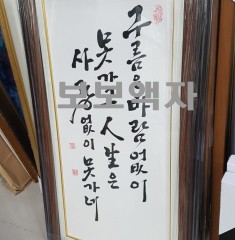 구름은 바람 없이
못가고 人 生은
사랑 없이 못가네
보보액자